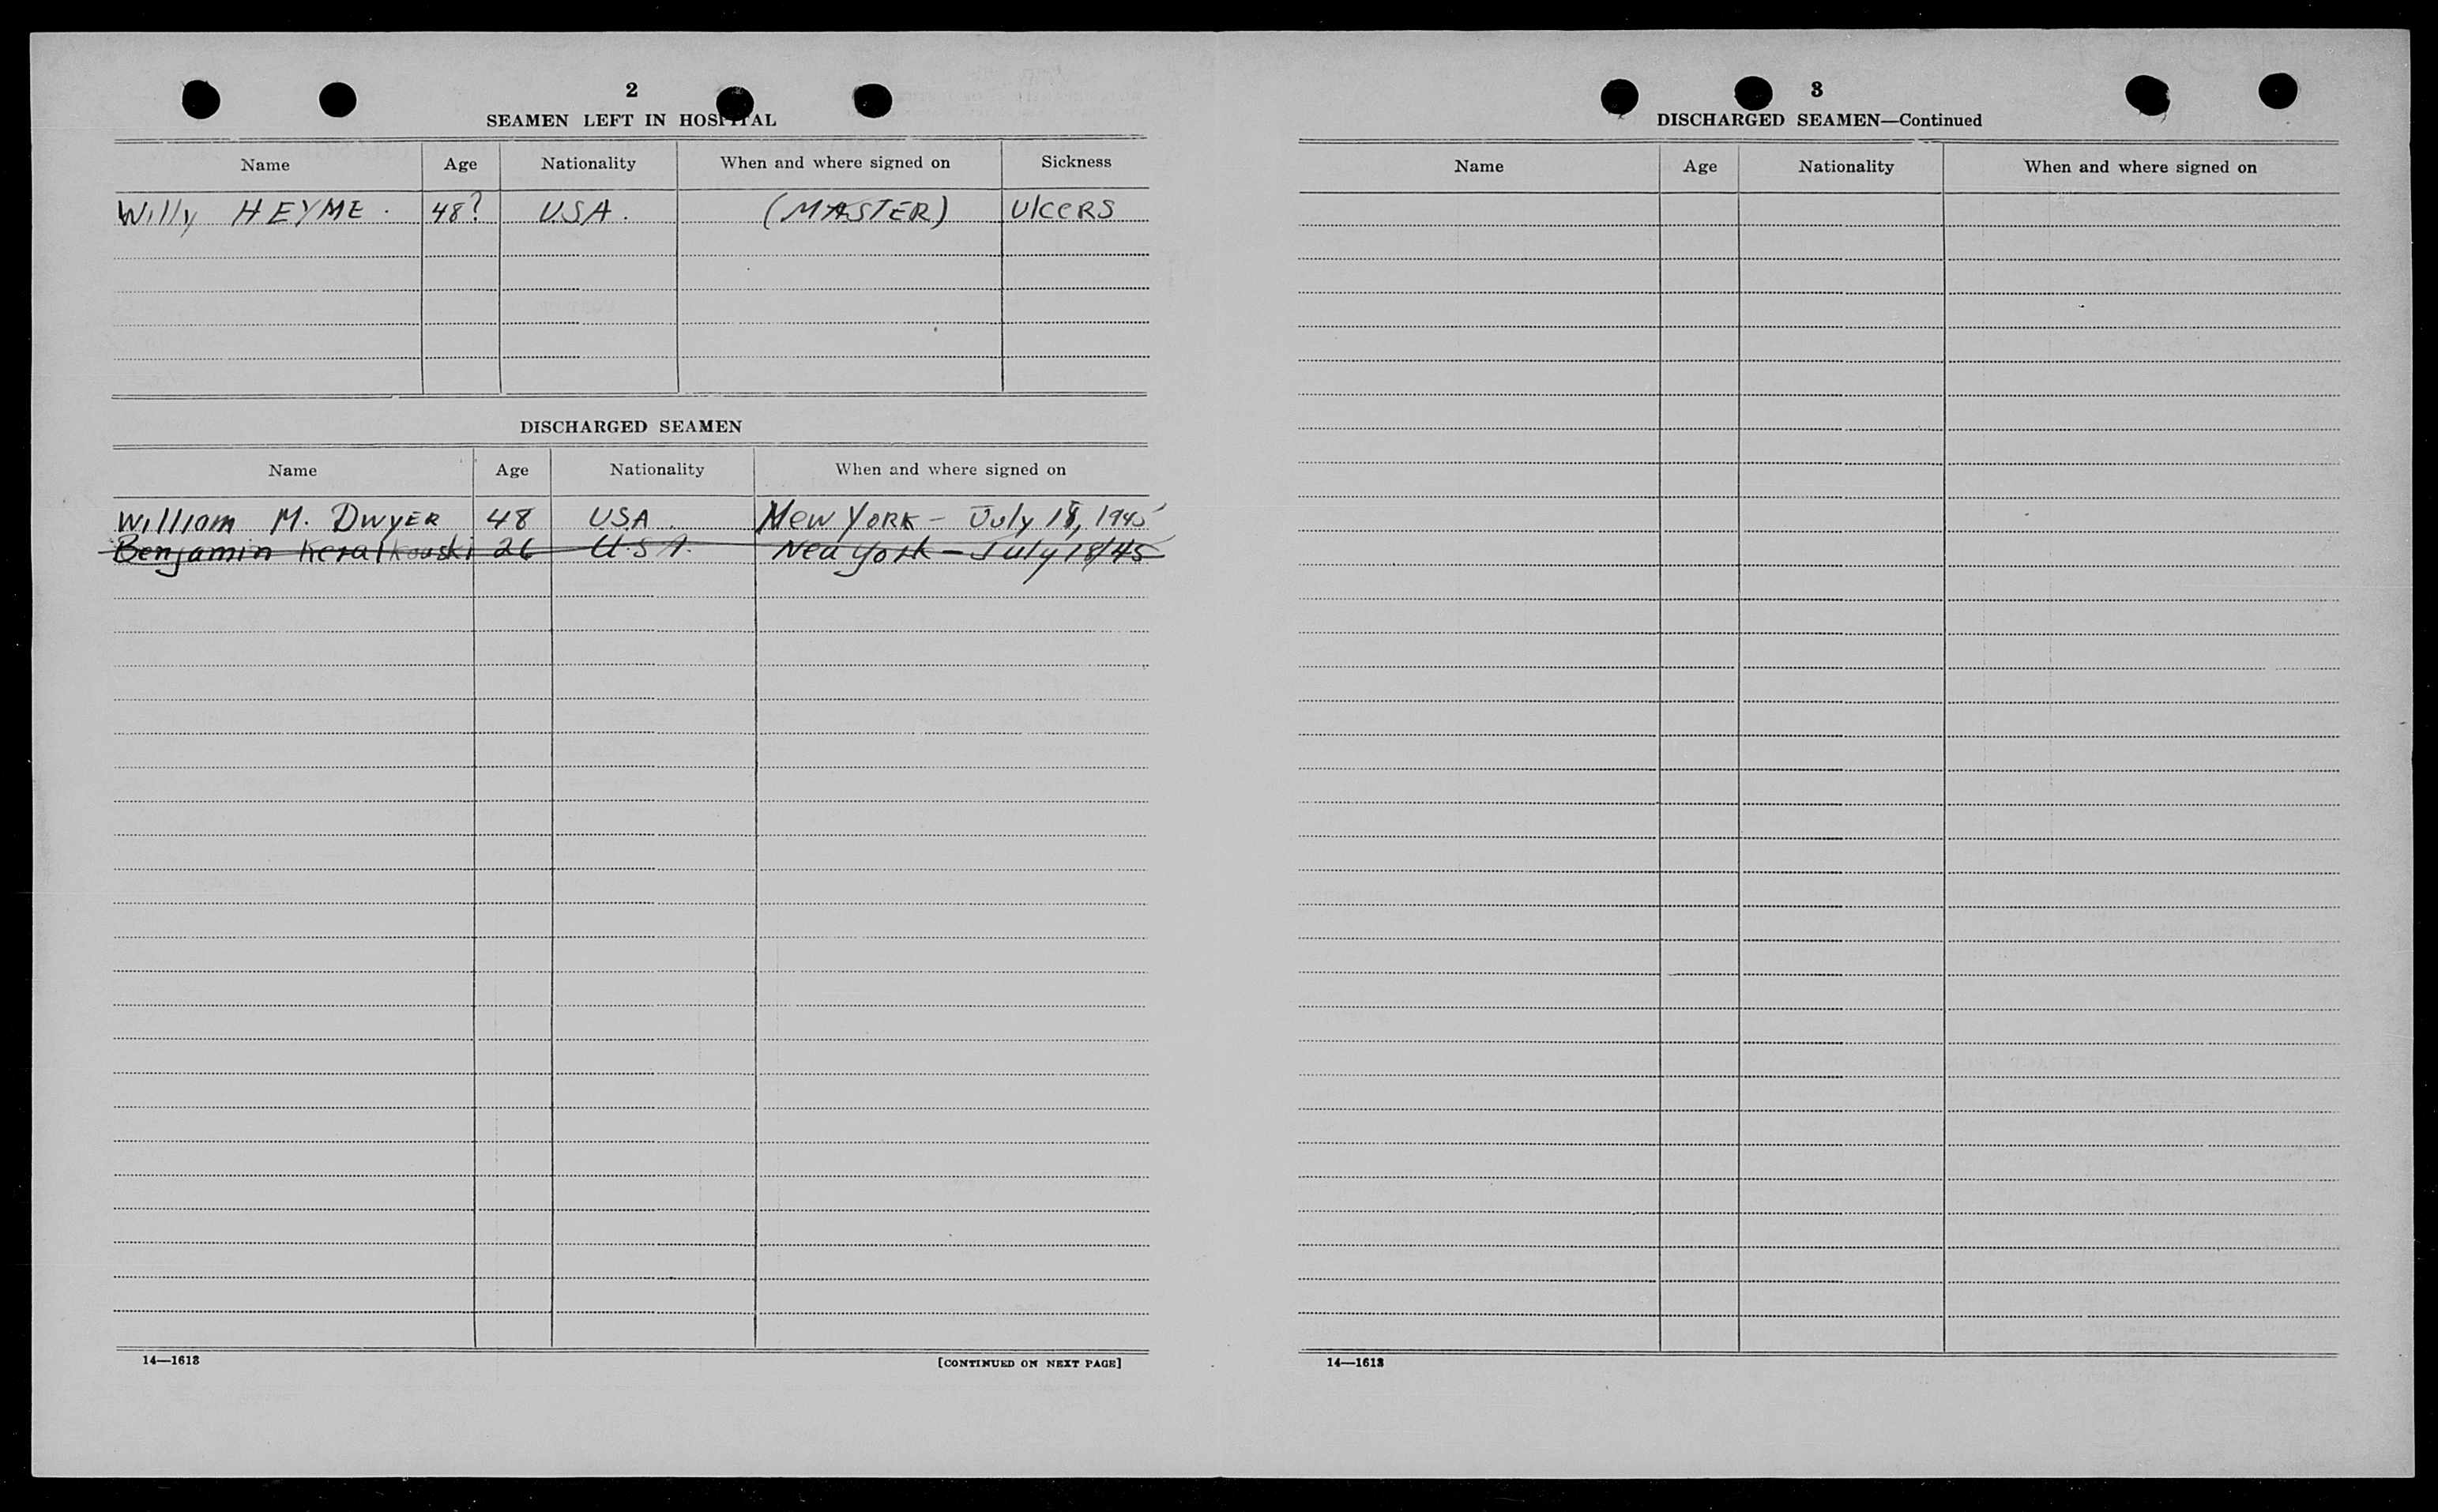 2
SEAMEN LEFT IN HOSPITAL
Name Age Nationality When and where signed on Sickness
Willy HEYME. 48? USA. (MASTER) UlCERS
DISCHARGED SEAMEN
Name Age Nationality When and where signed on
William M. DwyER 48 USA. New YORK - July 18, 1945
Benjamin 26 U.S.A. New York - July 18/45
14—1613 [CONTINUED ON NEXT PAGE]
3
DISCHARGED SEAMEN—Continued
Name Age Nationality When and where signed on
14—1613